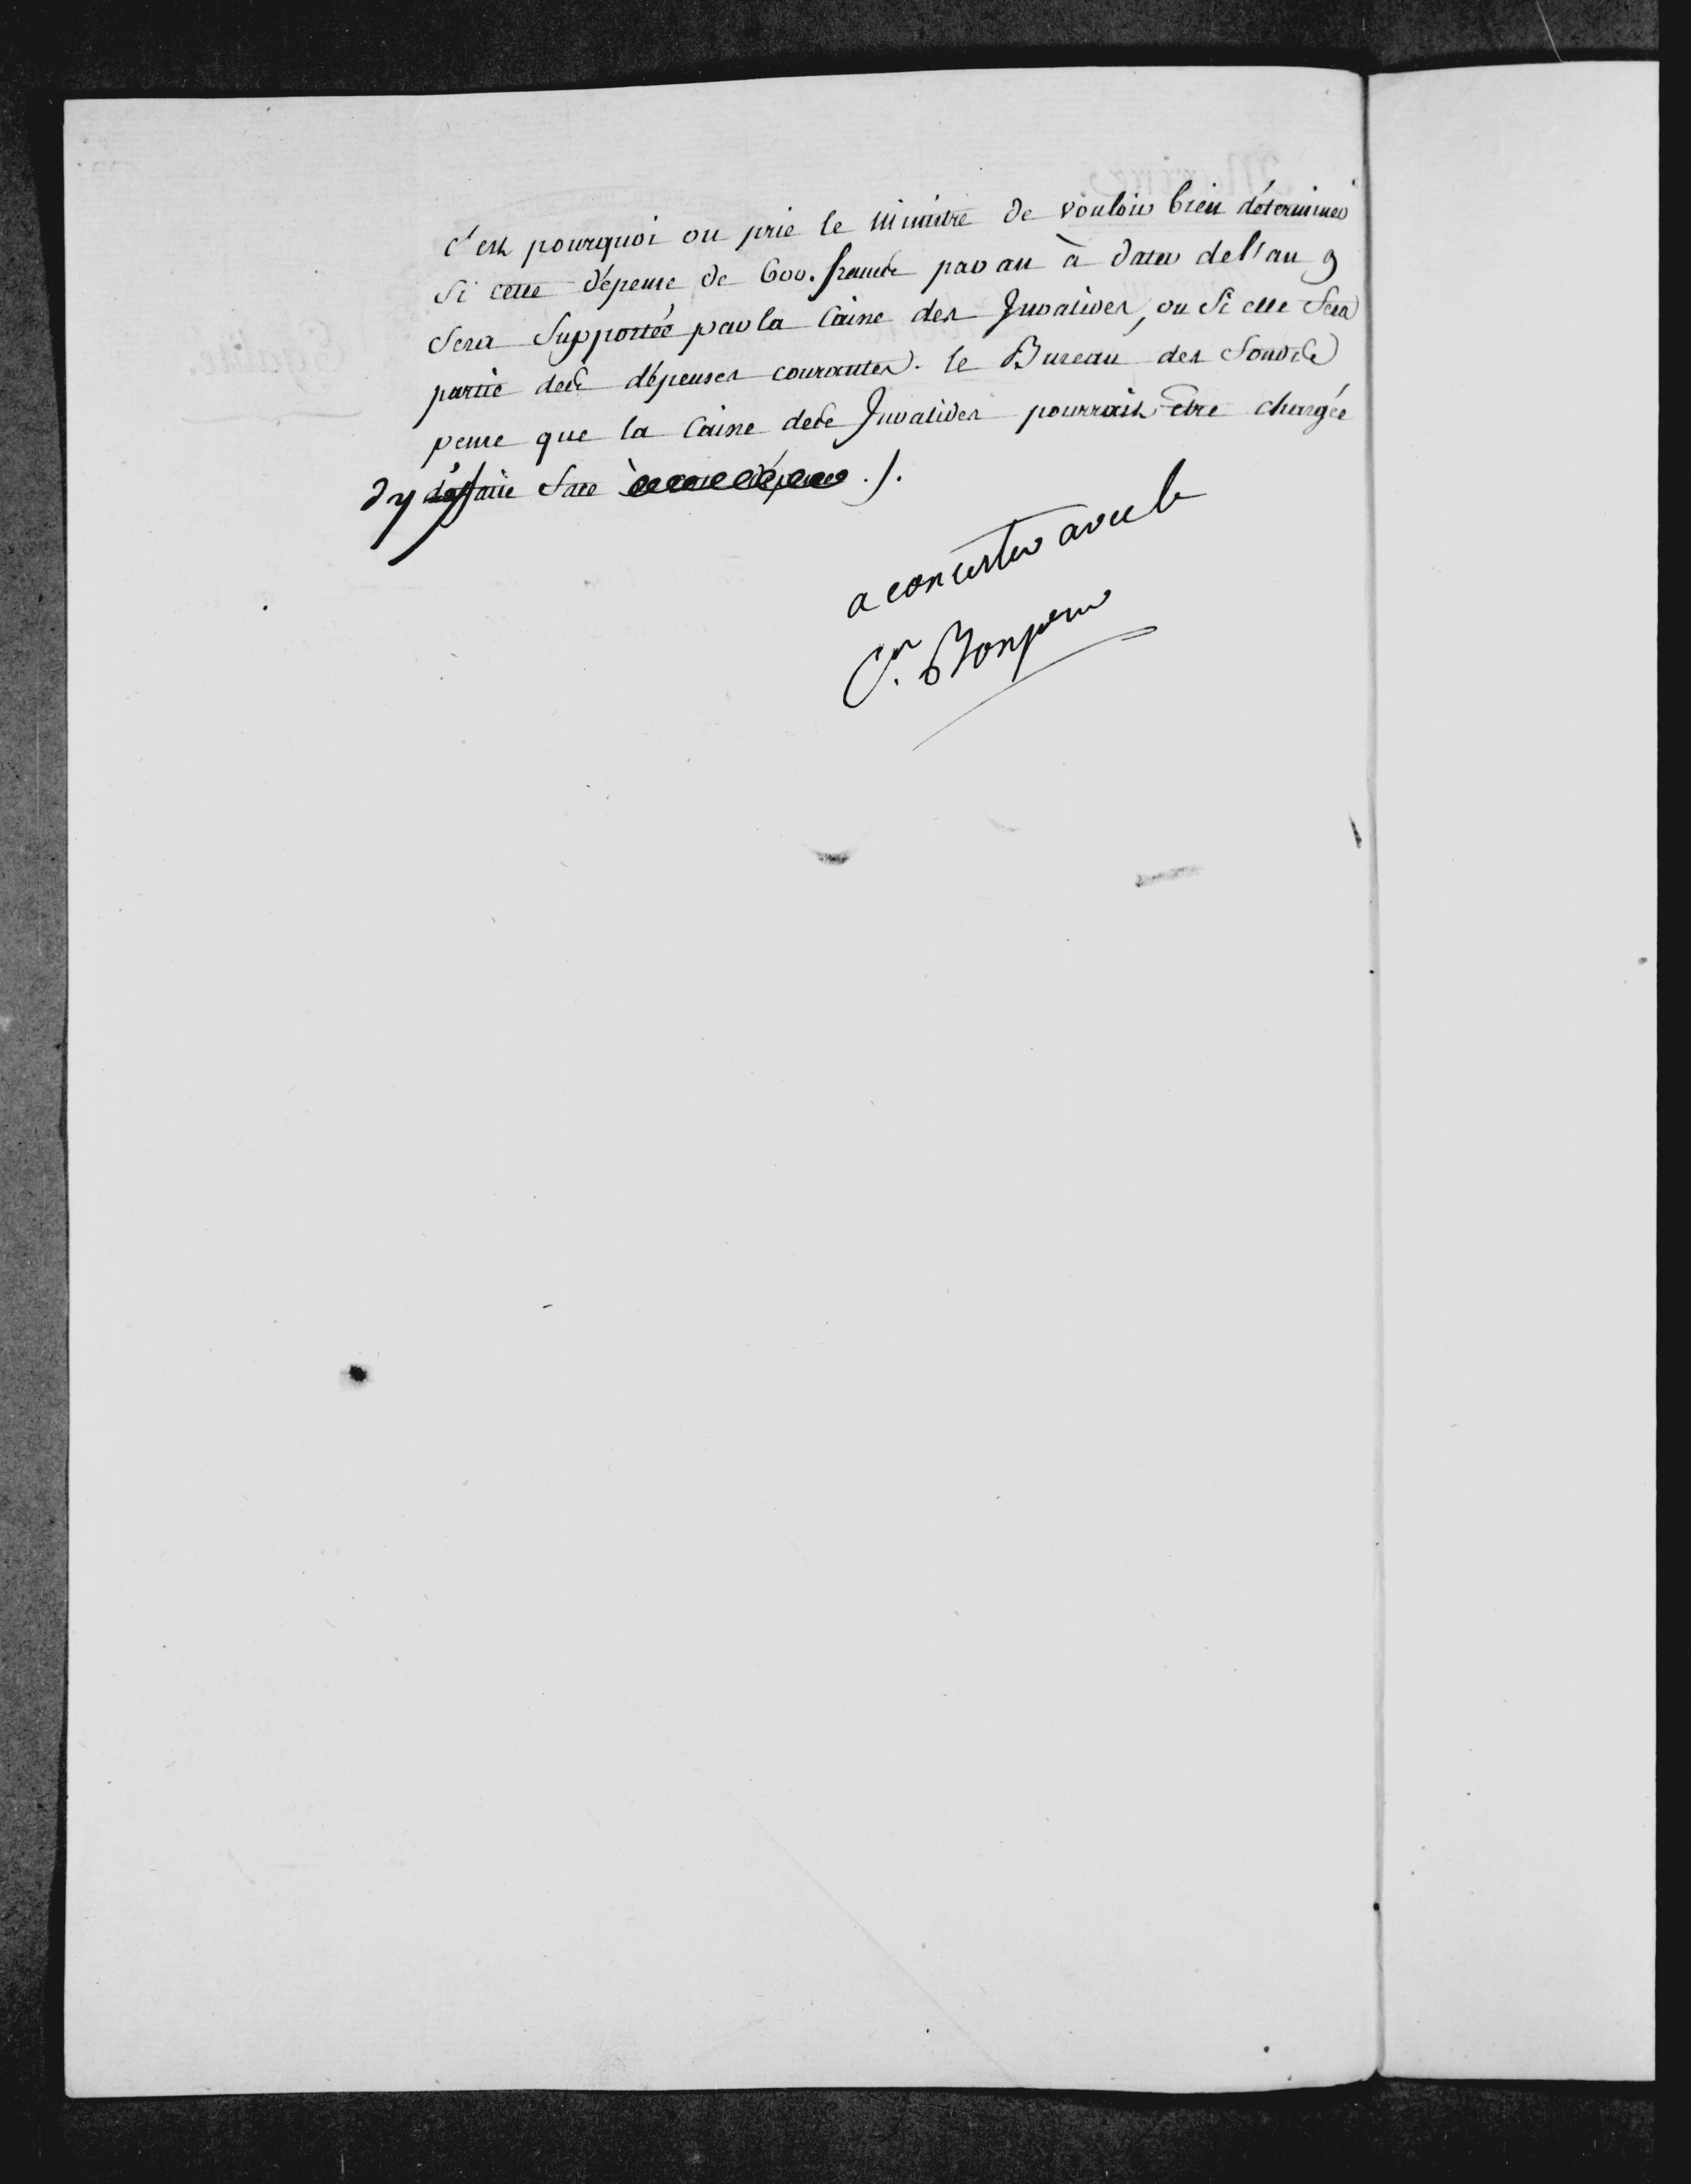 c'est pourquoi on prie le Ministre de vouloir bien déterminer
Si cette dépense de 600. francs par an à dater de l'an 9
Sera Supportée par la Caisse des Invalides, ou Si elle Sera
partie des dépenses courantes. le Bureau des fonds
pense que la Caisse des Invalides pourrait être chargée
d'y faire face ./.
a concerter avec le
C.en Bonjour